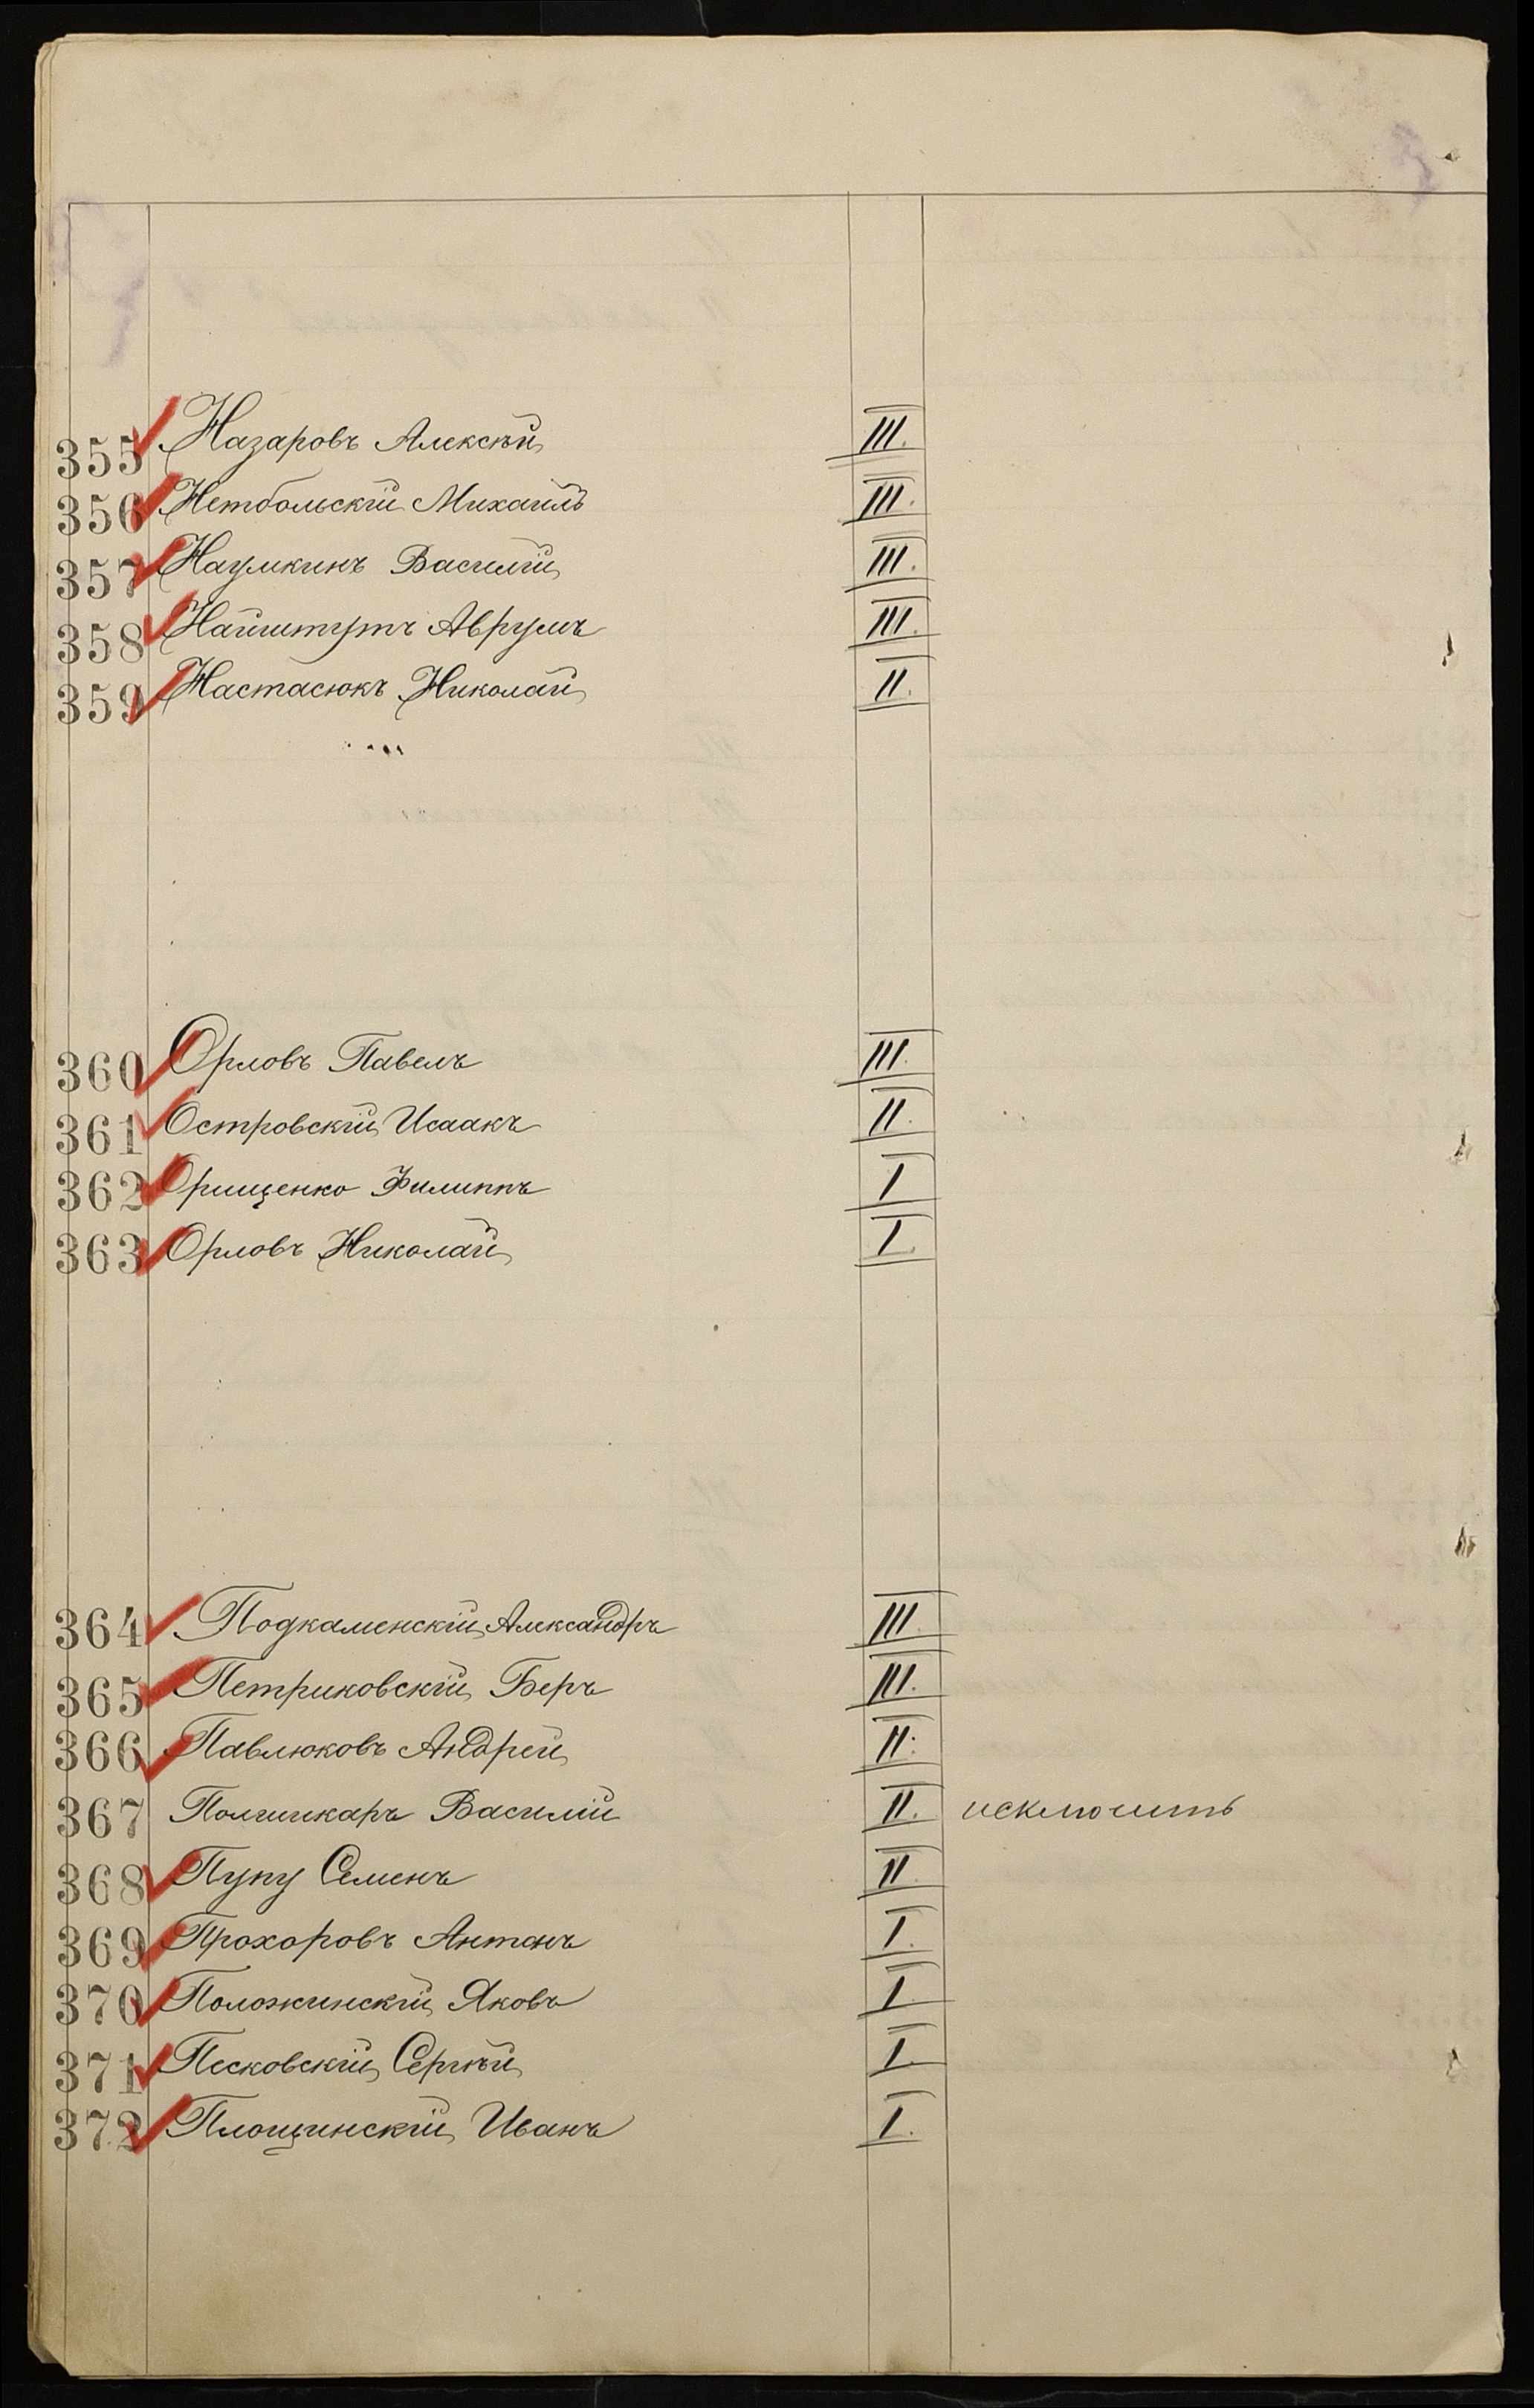 355 Назаровъ Алексѣй III.
356 Нетбольскій Михаилъ III.
357 Наумкинъ Василій III.
358 Найштутъ Аврумъ III.
359 Настасюкъ Николай II.
360 Орловъ Павелъ III.
361 Островскій Исаакъ II.
362 Орищенко Филиппъ I
363 Орловъ Николай I.
364 Подкаменскій Александръ III.
365 Петриковскій Беръ III.
366 Павлюковъ Андрей II.
367 Василій II. исключить
368 Пупу Семенъ II.
369 Прохоровъ Антонъ I.
370 Положинскій Яковъ I.
371 Песковскій Сергѣй I.
372 Площинскій Иванъ I.